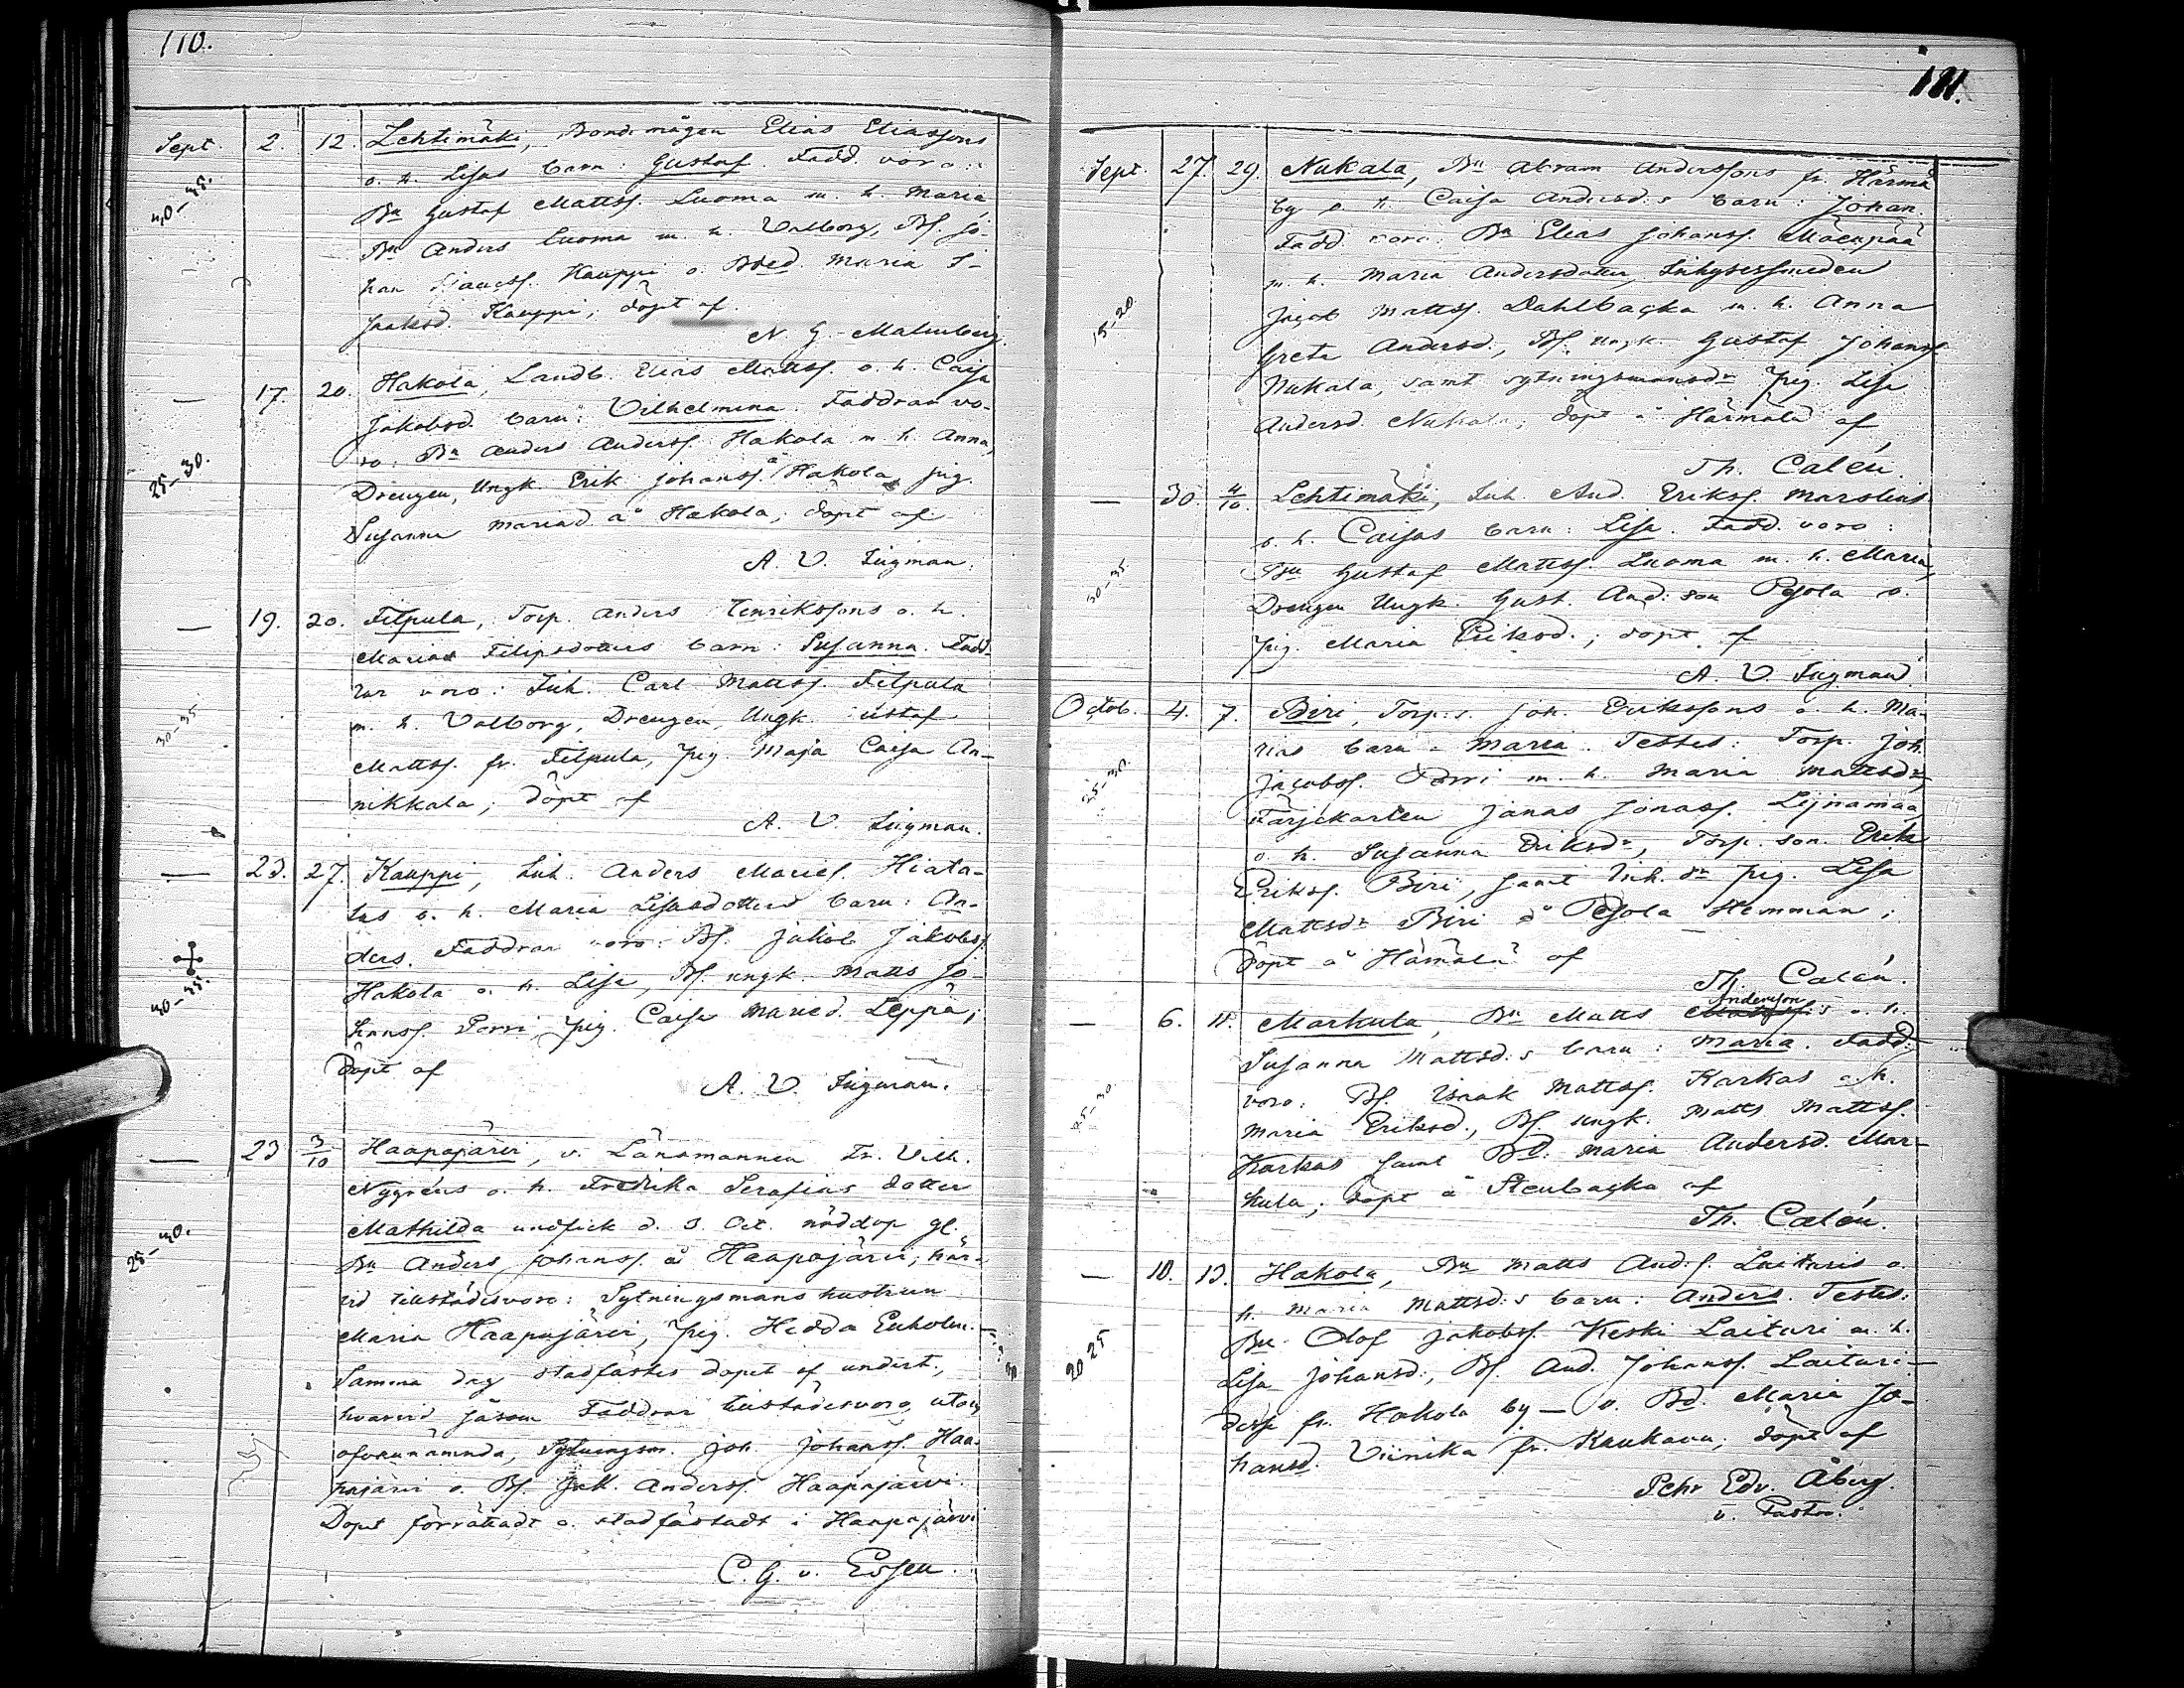 110.
Sept. 2. 12. Lehtimäki, Bondemågen Elias Eliassons
o. h. Lisas barn: Gustaf. Fadd. voro:
40-45. Bn Gustaf Mattss. Luoma m. h. Maria,
Bn Anders Luoma m. h. Valborg, Bs. Jo-
han Kauppi o. Bd. Maria I-
saksd. Kauppi; döpt af
N. G. Malmberg.
— 17. 20. Hakola, Landb. Elias Mattss. o. h. Caisa
Jakobsd. barn: Vilhelmina. Faddrar vo-
ro: Bn Anders Anderss. Hakola m. h. Anna,
25-30. Drengen, Ungk. Erik Johanss. å Hakola, pig.
Susanna Mariad. å Hakola; döpt af
A. V. Ingman.
— 19. 20. Filpula, Torp. Anders Henrikssons o. h.
Marias Filipsdotters barn: Susanna. Fadd-
rar voro: Inh. Carl Mattss. Filpula
30-35 m. h. Valborg, Drengen, Ungk. Gustaf
Mattss. fr. Filpula, pig. Maja Caisa An-
nikkala; döpt af
A. V. Ingman.
— 23. 27. Kauppi, Inh. Anders Maries. Hiata-
las o. h. Maria Lisasdotters barn: An-
ders. Faddrar voro: Bs. Jakob Jakobss.
40-45. Hakola o. h. Lisa, Bs. ungk. Matts Jo-
hanss. Porri, pig. Caisa Maried. Leppä;
Döpt af
A. V. Ingman.
— 23 3/10 Haapajärvi, v. Länsmannen Fr. Vilh.
Nygréns o. h. Fredrika Serafias dotter
Mathilda undfick d. 3. Oct. nöddop gl.
25-30. Bn Anders Johanss. å Haapajärvi; här-
vid tillstädesvoro: Sytningsmans hustrun
Maria Haapajärvi, pig. Hedda Enholm.
Samma dag stadfästes dopet af undert.,
hvarvid såsom Faddrar tillstädesvoro, utom
ofvannämnda, Sytningsm. Joh. Johanss. Haa-
pajärvi o. Bs. Jak. Anderss. Haapajärvi.
Dopet förrättadt o. stadfästadt i Haapajärvi
C. G. v. Essen.
111.
Sept. 27. 29. Nukala, Bn Abram Anderssons fr. Härmä
by o. h. Caisa Andersd:s barn: Johan.
Fadd. voro: Bn Elias Johanss. Mäenpää
m. h. Maria Andersdotter, Inhysessmeden
15-20. Jacob Mattss. Dahlbacka m. h. Anna
Greta Andersd., Bs. ungk. Gustaf Johanss.
Nukala, samt sytningsmansdr pig. Lisa
Andersd. Nukala; döpt å Härmälä af
Th. Calén.
— 30. 4/10. Lehtimäki, Inh. And. Erikss. Marslins
o. h. Caisas barn: Lisa. Fadd. voro:
30-35. Bn Gustaf Mattss. Luoma m. h. Maria,
Drengen Ungk. Gust. And:son Pesola o.
pig. Maria Eriksd.; döpt af
A. V. Ingman.
Octob. 4. 7. Biri, Torp:s Joh. Erikssons o. h. Ma-
rias barn: Maria. Testes: Torp. Joh.
25-30. Jacobss. Porri m. h. Maria Mattsdr,
Färjekarlen Jonas Jonass. Lijnamaa
o. h. Susanna Eriksdr, Torp. son Erik
Erikss. Biri, samt Inh. dr pig. Lisa
Mattsdr Biri å Pesola Hemman;
Döpt å Hämälä af
Th. Calén.
Andersson
— 6. 11. Markula, Bn Matts Mattss:s o. h.
Susanna Mattsd:s barn: Maria. Fadd:
voro: Bs. Isaak Mattss. Karkas o. h.
25-30 Maria Eriksd., Bs. ungk. Matts Mattss.
Karkas samt Bd. Maria Andersd. Mar-
kula; döpt å Stenbacka af
Th. Calén.
— 10. 13. Hakola, Bn Matts And.s. Laituris o.
h. Maria Mattsd:s barn: Anders. Testes:
Bn. Olof Jakobss. Keski Laituri m. h.
20-25 Lisa Johansd., Bs. And. Johanss. Laituri —
desse fr. Hakola by — o. Bd. Maria Jo-
hansd. Viinika fr. Kaukava; döpt af
Pehr Edv. Åberg.
v. Pastor.